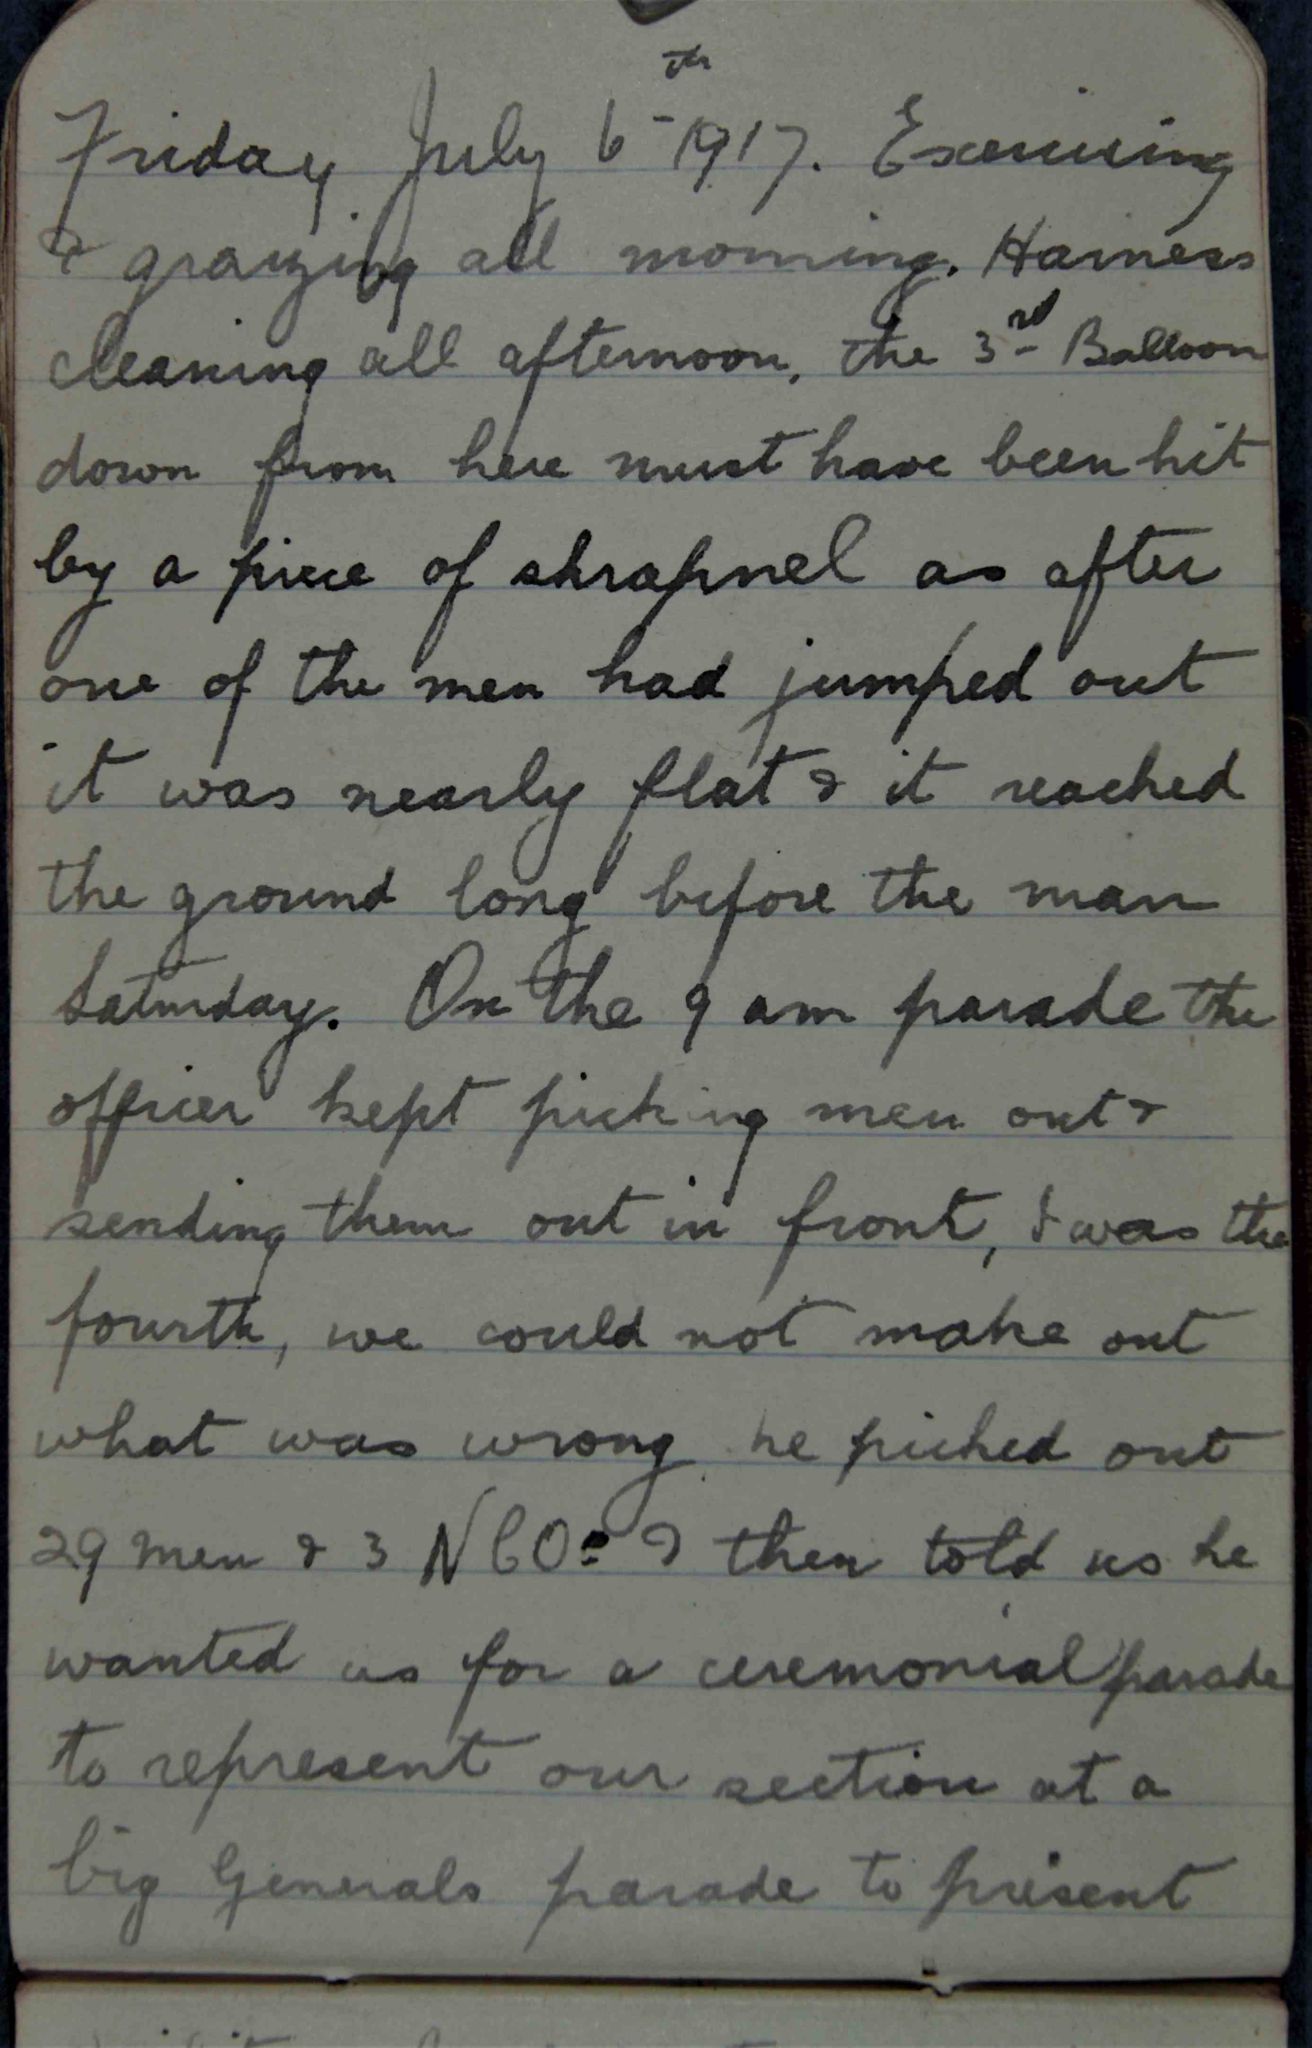 Friday July 6th 1917. Exercising
& grazing all morning. Harness
cleaning all afternoon, the 3rd Balloon
down from here must have been hit
by a piece of shrapnel as after
one of the men had jumped out
it was nearly flat & it reached
the ground long before the man
Saturday. On the 9 am parade the
officer kept picking men out &
sending them out in front, I was the
fourth, we could not make out
what was wrong he picked out
29 men & 3 NCOs & then told us he
wanted us for a ceremonial parade
to represent our section at a
big Generals parade to present